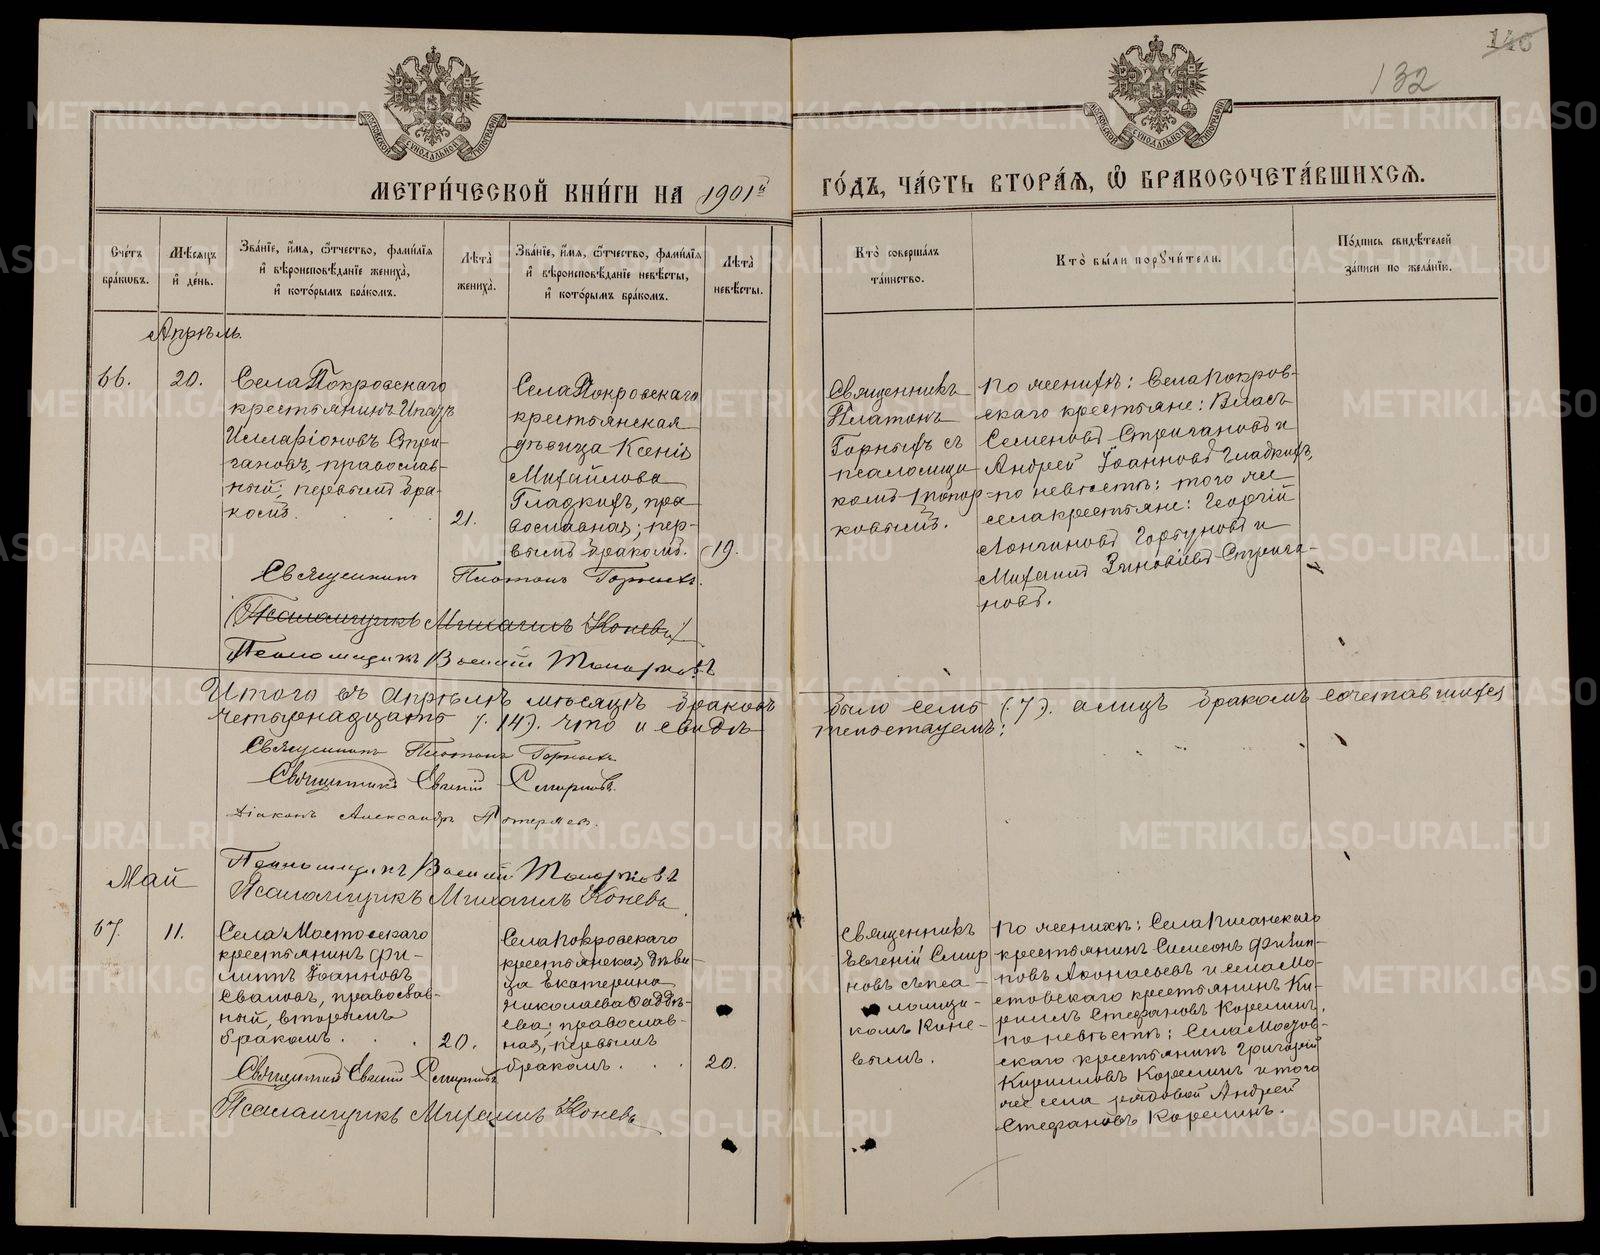 146
132
МОСКОВСКОЙ СѴНОДАЛЬНОЙ ТИПОГРАФІИ
МОСКОВСКОЙ СѴНОДАЛЬНОЙ ТИПОГРАФІИ
МЕТРИ́ЧЕСКОЙ КНИ́ГИ НА 1901й ГО́ДЪ, ЧА́СТЬ ВТОРА́Ѧ, Ѽ БРАКОСОЧЕТА́ВШИХСѦ.
Сче́тъ
бра́кѡвъ.
Мѣ́сѧцъ
и҆ де́нь.
Зва́нїе, и҆́мѧ, ѻ҆́тчество, фами́лїѧ
и҆ вѣроисповѣ́данїе жениха̀,
и҆ кото́рымъ бра́комъ.
Лѣ́та̀
жениха̀.
Зва́нїе, и҆́мѧ, ѻ҆́тчество, фами́лїѧ
и҆ вѣроисповѣ́данїе невѣ́сты,
и҆ кото́рымъ бра́комъ.
Лѣ́та̀
невѣ́сты.
Кто̀ соверша́лъ
та́инство.
Кто̀ бы́ли порꙋчи́тели.
По́дпись свидѣ́телей
за́писи по жела́нїю.
Апрѣль.
66.
20.
Села Покровскаго
крестьянинъ Ипатъ
Илларіоновъ Стри-
гановъ, православ-
ный; первымъ бра-
комъ.
21.
Села Покровскаго
крестьянская
дѣвица Ксенія
Михайлова
Гладкихъ, пра
вославная; пер-
вымъ бракомъ.
19.
Священникъ
Платонъ
Горныхъ съ
псаломщи
комъ Топор-
ковымъ.
По женихѣ: Села Покров-
скаго крестьяне: Власъ
Семеновъ Стригановъ и
Андрей Іоанновъ Гладкихъ,
по невѣстѣ: того же
села крестьяне: Георгій
Лонгиновъ Горбуновъ и
Михаилъ Зиновіевъ Стрига-
новъ.
Священникъ Платонъ Горныхъ.
(Псаломщикъ Михаилъ Коневъ)
Псаломщикъ Василій Топорковъ
Итого въ Апрѣлѣ мѣсяцѣ браковъ было семь (7). а лицъ бракомъ сочетавшихся
четырнадцать (14). что и свидѣтельствуемъ:
Священникъ Платонъ Горныхъ.
Священникъ Евгеній Смирновъ.
Діаконъ Александръ
Псаломщикъ Василій Топорковъ
Псаломщикъ Михаилъ Коневъ
Май
67.
11.
Села Мостовскаго
крестьянинъ Фи-
липпъ Іоанновъ
Сваловъ, православ-
ный, вторымъ
бракомъ.
20.
Села Покровскаго
крестьянская дѣви
ца Екатерина
Николаева Фаддѣ-
ева; православ-
ная, первымъ
бракомъ.
20.
Священникъ
Евгеній Смир
новъ съ пса-
ломщи-
комъ Коне-
вымъ.
По женихѣ: Села Писанскаго
крестьянинъ Симеонъ Филип-
повъ Афонасьевъ и села Мо-
стовскаго крестьянинъ Ки-
риллъ Стефановъ Корелинъ,
по невѣстѣ: Села Мостов-
скаго крестьянинъ Григорій
Кирилловъ Корелинъ и того
же села рядовой Андрей
Стефановъ Корелинъ.
Священникъ Евгеній Смирновъ
Псаломщикъ Михаилъ Коневъ
METRIKI.GASO-URAL.RU